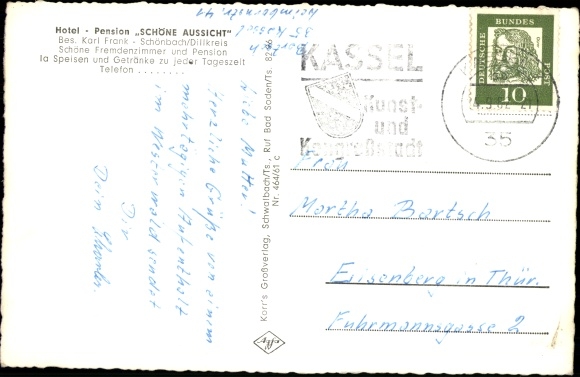 Hotel - Pension „SCHÖNE AUSSICHT"
Bes. Karl Frank - Schönbach/Dillkreis
Schöne Fremdenzimmer und Pension
Ia Speisen und Getränke zu jeder Tageszeit
Telefon . . . . . . . .
Bartsch
35 Kassel
Liebe Mutter!
Herzliche Grüße von einem
mehrtägigen Aufenthalt
im Westerwald sendet
Dir
Dein
Karr's Großverlag, Schwalbach/Ts., Ruf Bad Soden/Ts. 8286
Nr. 464/61 c
KASSEL
Kunst-
und
Kongreßstadt
35
DEUTSCHE BUNDESPOST
10
Frau
Martha Bartsch
Eisenberg in Thür.
Fuhrmannsgasse 2